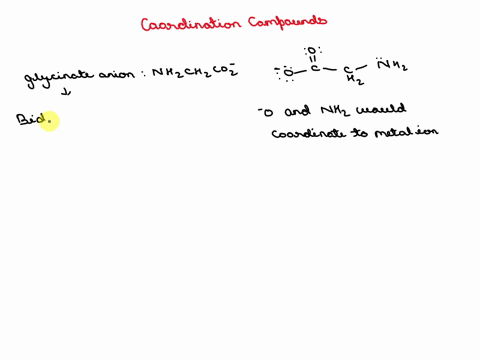 Coordination Compounds
glycinate anion : NH2CH2CO2-
↓
Bid.
:O:
||
-:O: - C - CH2 - NH2
-O and NH2 would
coordinate to metal ion